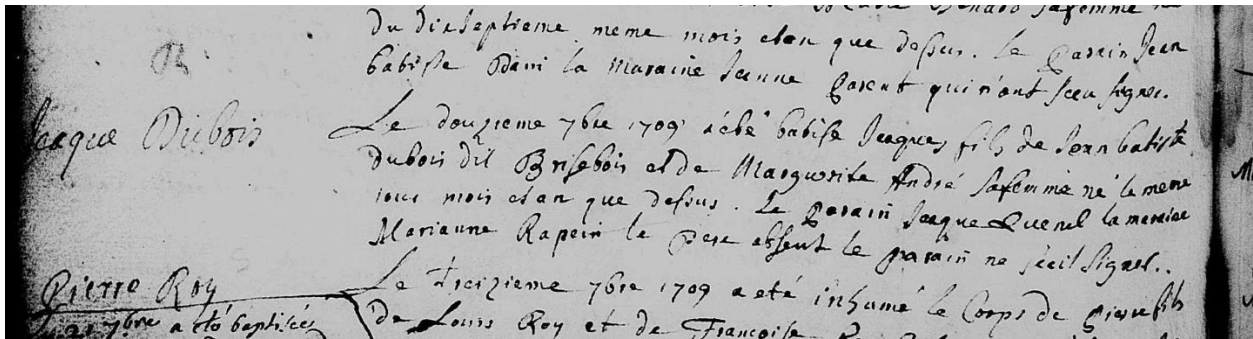 safemme
du dixseptieme meme mois et an que dessus. Le parain Jean
babiste la Maraine Jeanne Parent qui n'ont sceu signer.
Jacque Dubois
Le douzieme 7bre 1709 a été babise Jacques fils de Jean batiste
dubois dit Brisebois et de Marguerite André safemme né le meme
jour mois et an que dessus. Le parain Jacque Quenel la maraine
Marianne Rapein le Pere absent le parain ne sceit signer..
Pierre Roy
7bre a été baptisées
Le treizieme 7bre 1709 a eté inhumé le Corps de Pierre fils
de Louis Roy et de Francoise